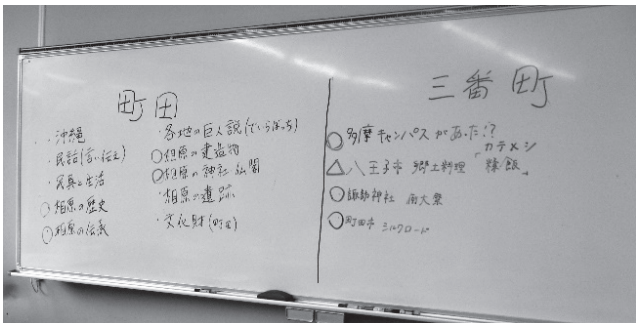 町田
・沖縄
・民話(言い伝え)
・民具と生活
○相原の歴史
○相原の伝承
・各地の巨人説(でいらぼっち)
○相原の建造物
○相原の神社 仏閣
・相原の遺跡
・文化財(町田)
三番町
○多摩キャンパスがあった!?
△八王子市 郷土料理「糧飯」
カテメシ
○諏訪神社
○町田市 シルクロード